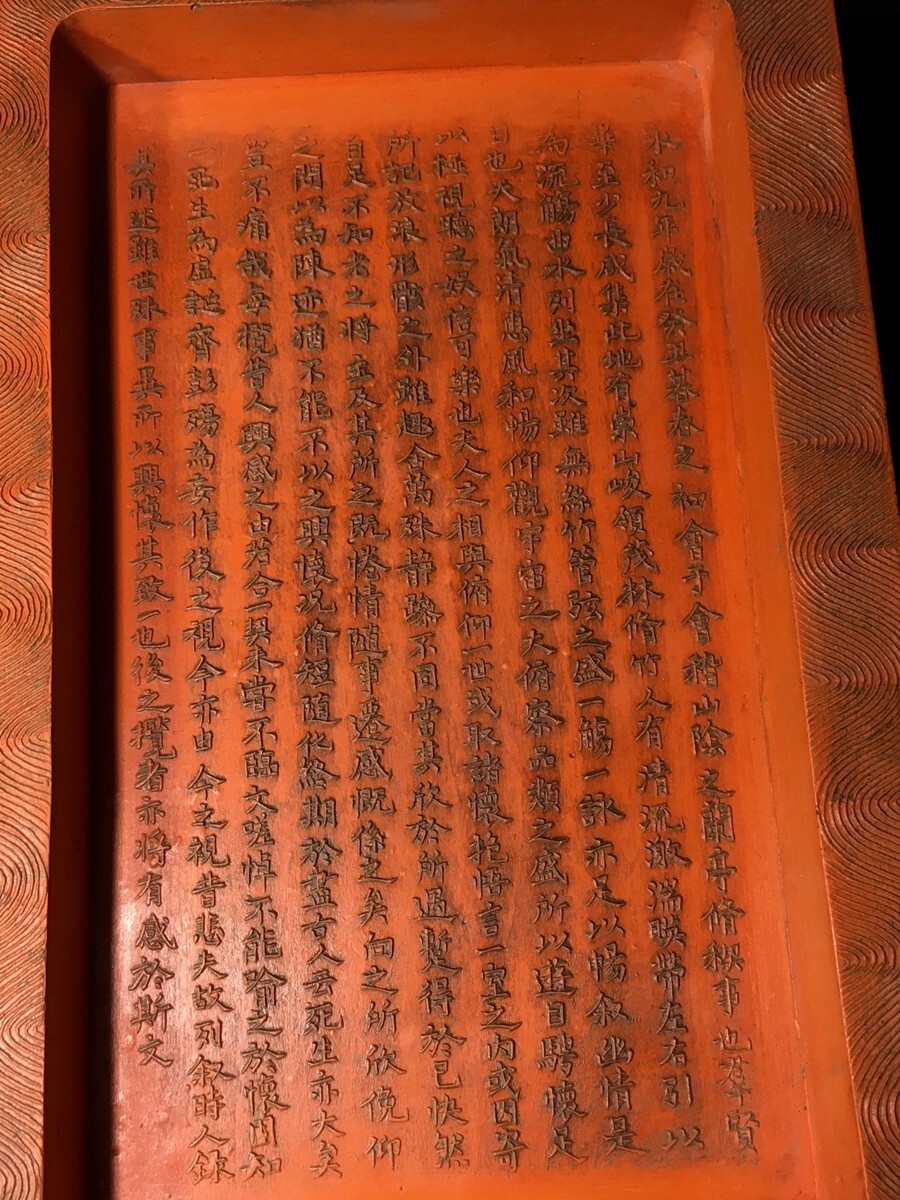 永和九年歲在癸丑暮春之初會于會稽山陰之蘭亭脩禊事也群賢
畢至少長咸集此地有崇山峻領茂林脩竹又有清流激湍映帶左右引以
為流觴曲水列坐其次雖無絲竹管弦之盛一觴一詠亦足以暢敘幽情是
日也天朗氣清惠風和暢仰觀宇宙之大俯察品類之盛所以遊目騁懷足
以極視聽之娛信可樂也夫人之相與俯仰一世或取諸懷抱悟言一室之內或因寄
所託放浪形骸之外雖趣舍萬殊靜躁不同當其欣於所遇暫得於己快然
自足不知老之將至及其所之既惓情隨事遷感慨係之矣向之所欣俛仰
之間以為陳迹猶不能不以之興懷況脩短隨化終期於盡古人云死生亦大矣
豈不痛哉每攬昔人興感之由若合一契未嘗不臨文嗟悼不能喻之於懷固知
一死生為虛誕齊彭殤為妄作後之視今亦由今之視昔悲夫故列敘時人錄
其所述雖世殊事異所以興懷其致一也後之攬者亦將有感於斯文